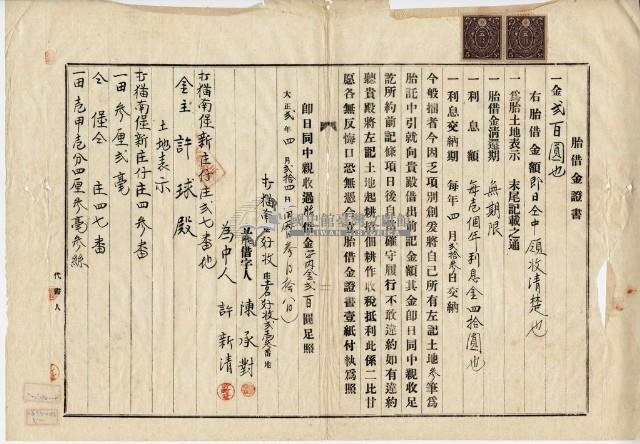 胎借金證書
一金貳百圓也
右胎借金額即日仝中領收清楚也
一為胎土地表示 末尾記載之通
一胎借金清還期 無期限
一利息額 每壱個年利息金四拾圓也
一利息交納期 每年四月貳拾參日交納
今般掴者今因乏項別創爰將自己所有左記土地參筆為
胎託中引就向貴殿借出前記金額其金即日同中親收足
訖所約前記條項日後自當確守履行不敢違約如有違約
聽貴殿將左記土地起耕招佃耕作收稅抵利此係二比甘
愿各無反悔口恐無憑今立胎借金證書壹紙付執為照
即日同中親收過胎借金正貳百圓足照
大正貳年四月貳拾四日
打猫南堡好收庄
立胎借字人 陳承對
為中人 許新清
打猫南堡新庄仔庄貳七番地
金主 許球殿
土地表示
打猫南堡新庄仔庄四參番
一田參厘貳毫
仝堡仝庄四七番
一田壱甲壱分四厘參毫參絲
代書人